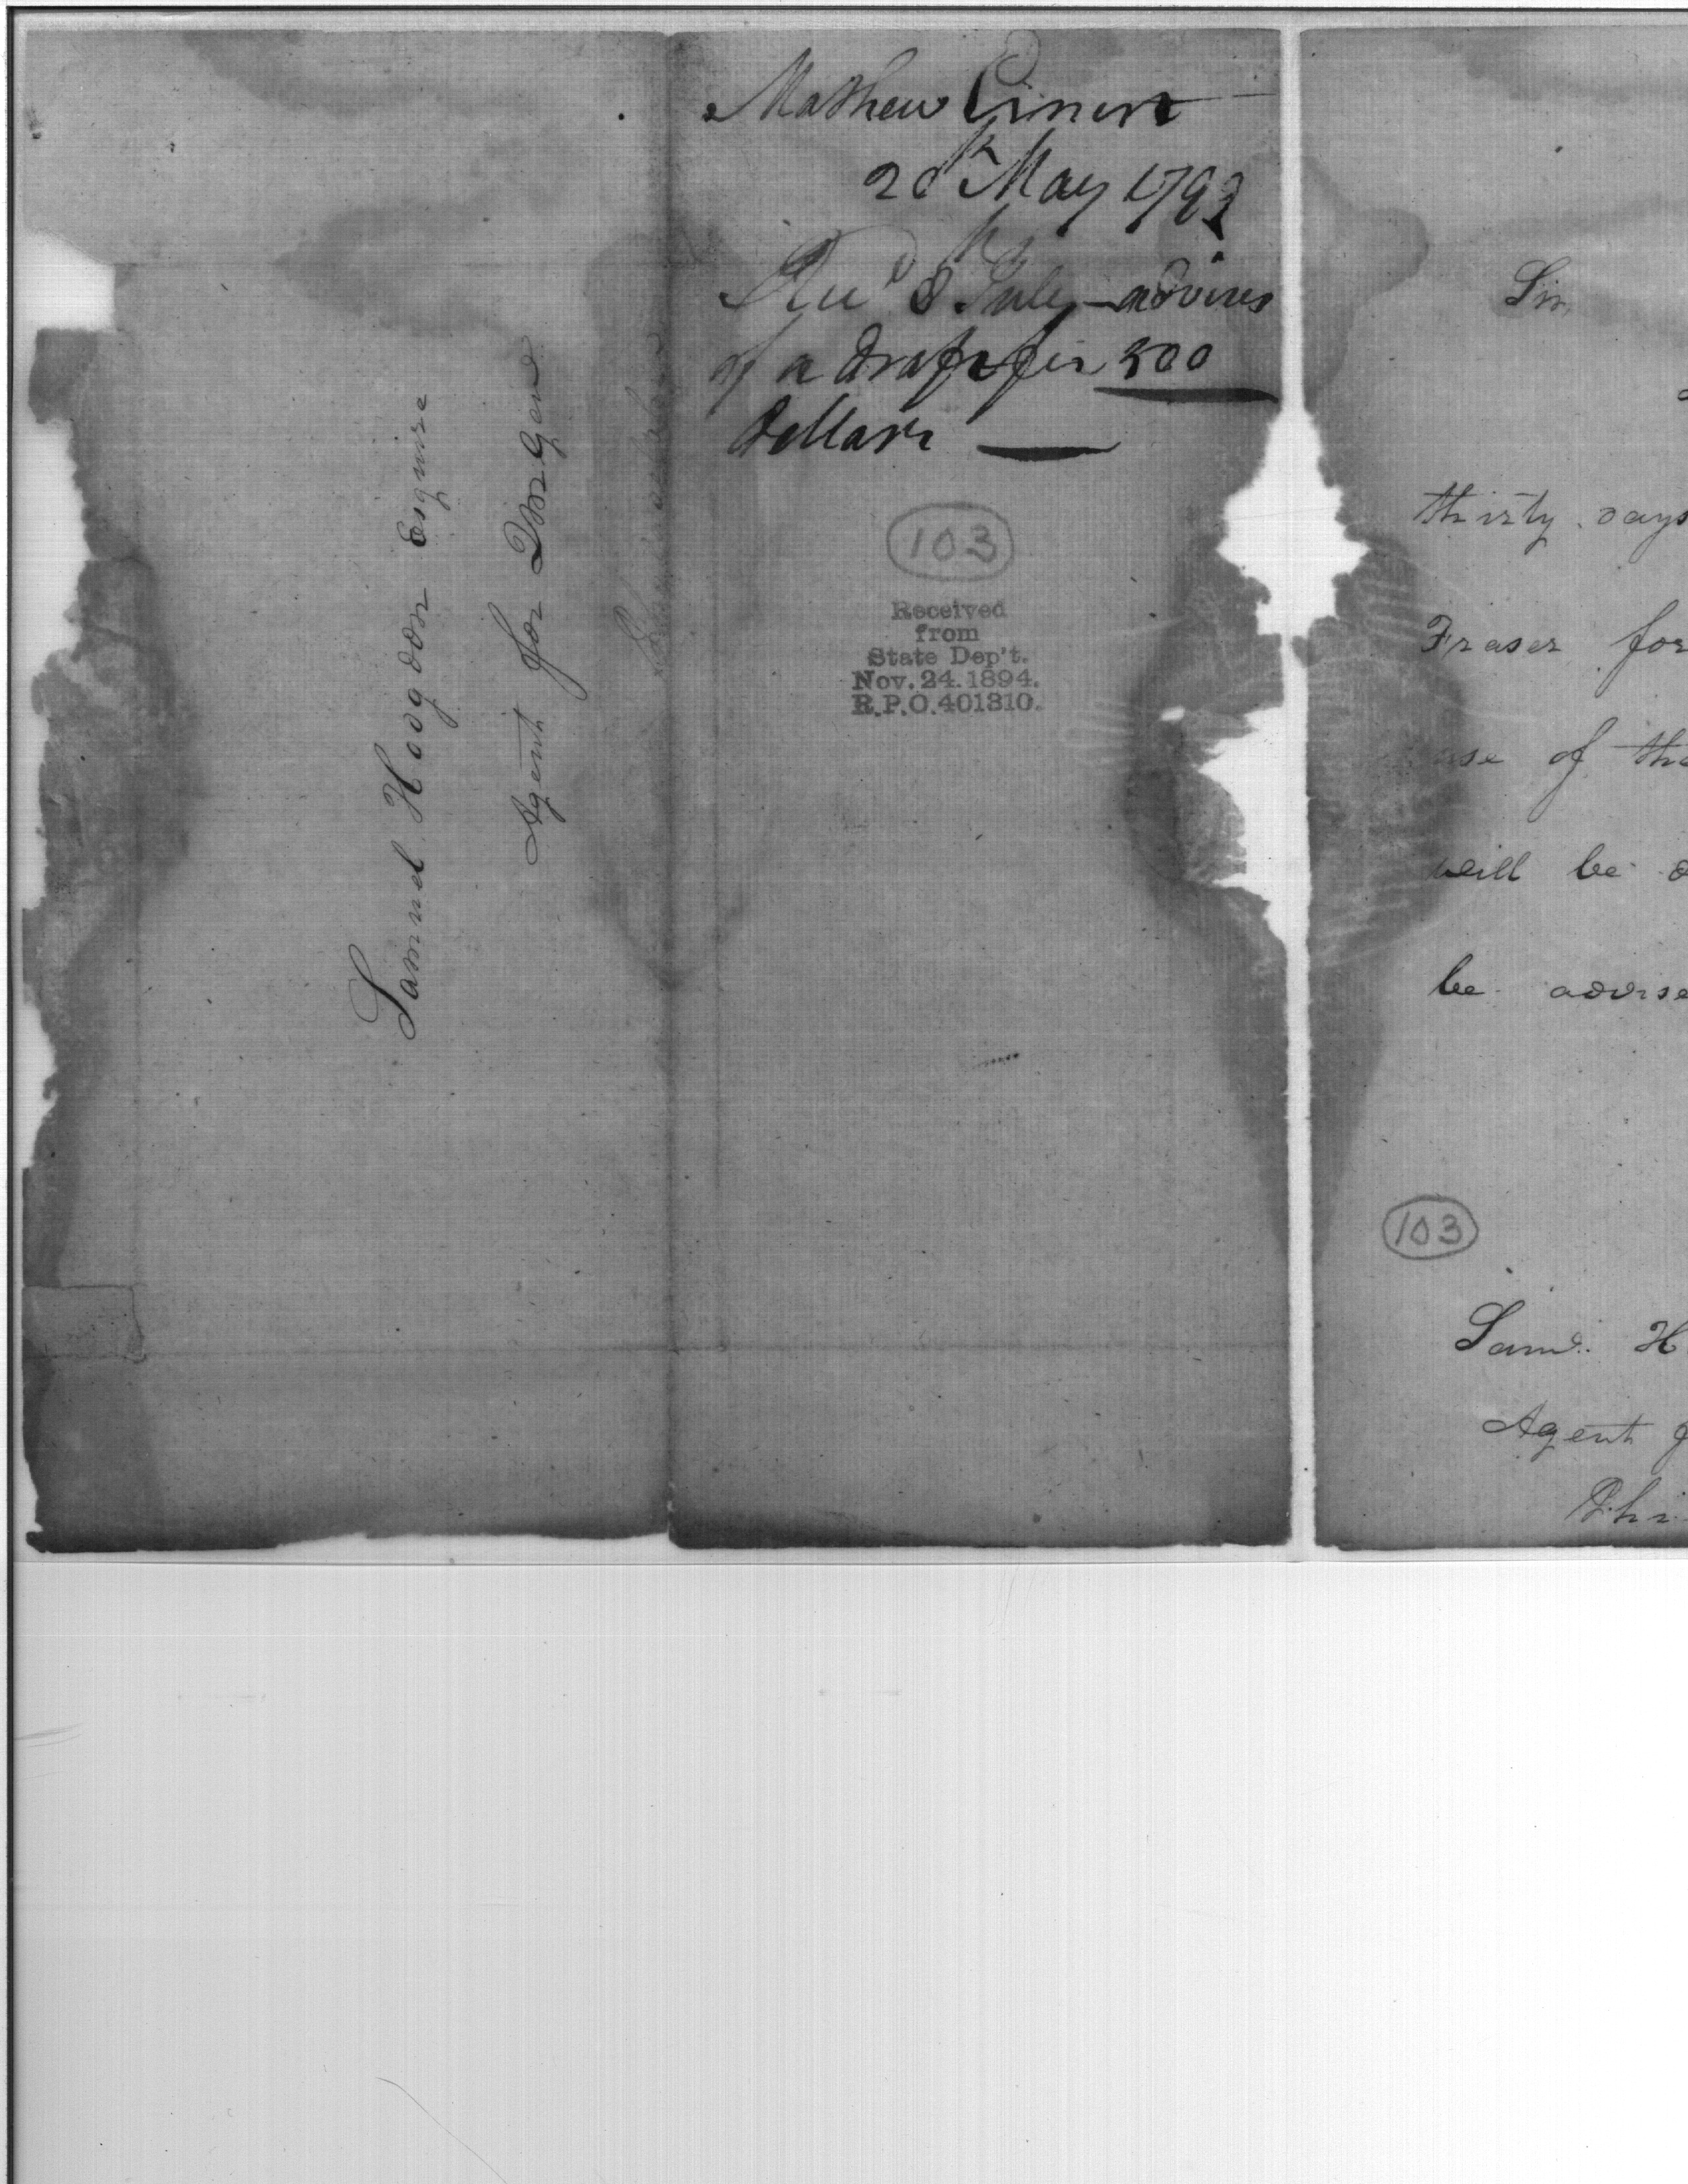 Samuel Hodgdon Esquire
Agent for
Mathew
20th May 1793
Recd 8th July advises
of a draft for 500
dollars
103
Received
from
State Dep't.
Nov. 24. 1894.
R.P.O. 401310.
Sir,
thirty days
Fraser for
use of the
will be
be advise
103
Saml. H
Agent
Phi